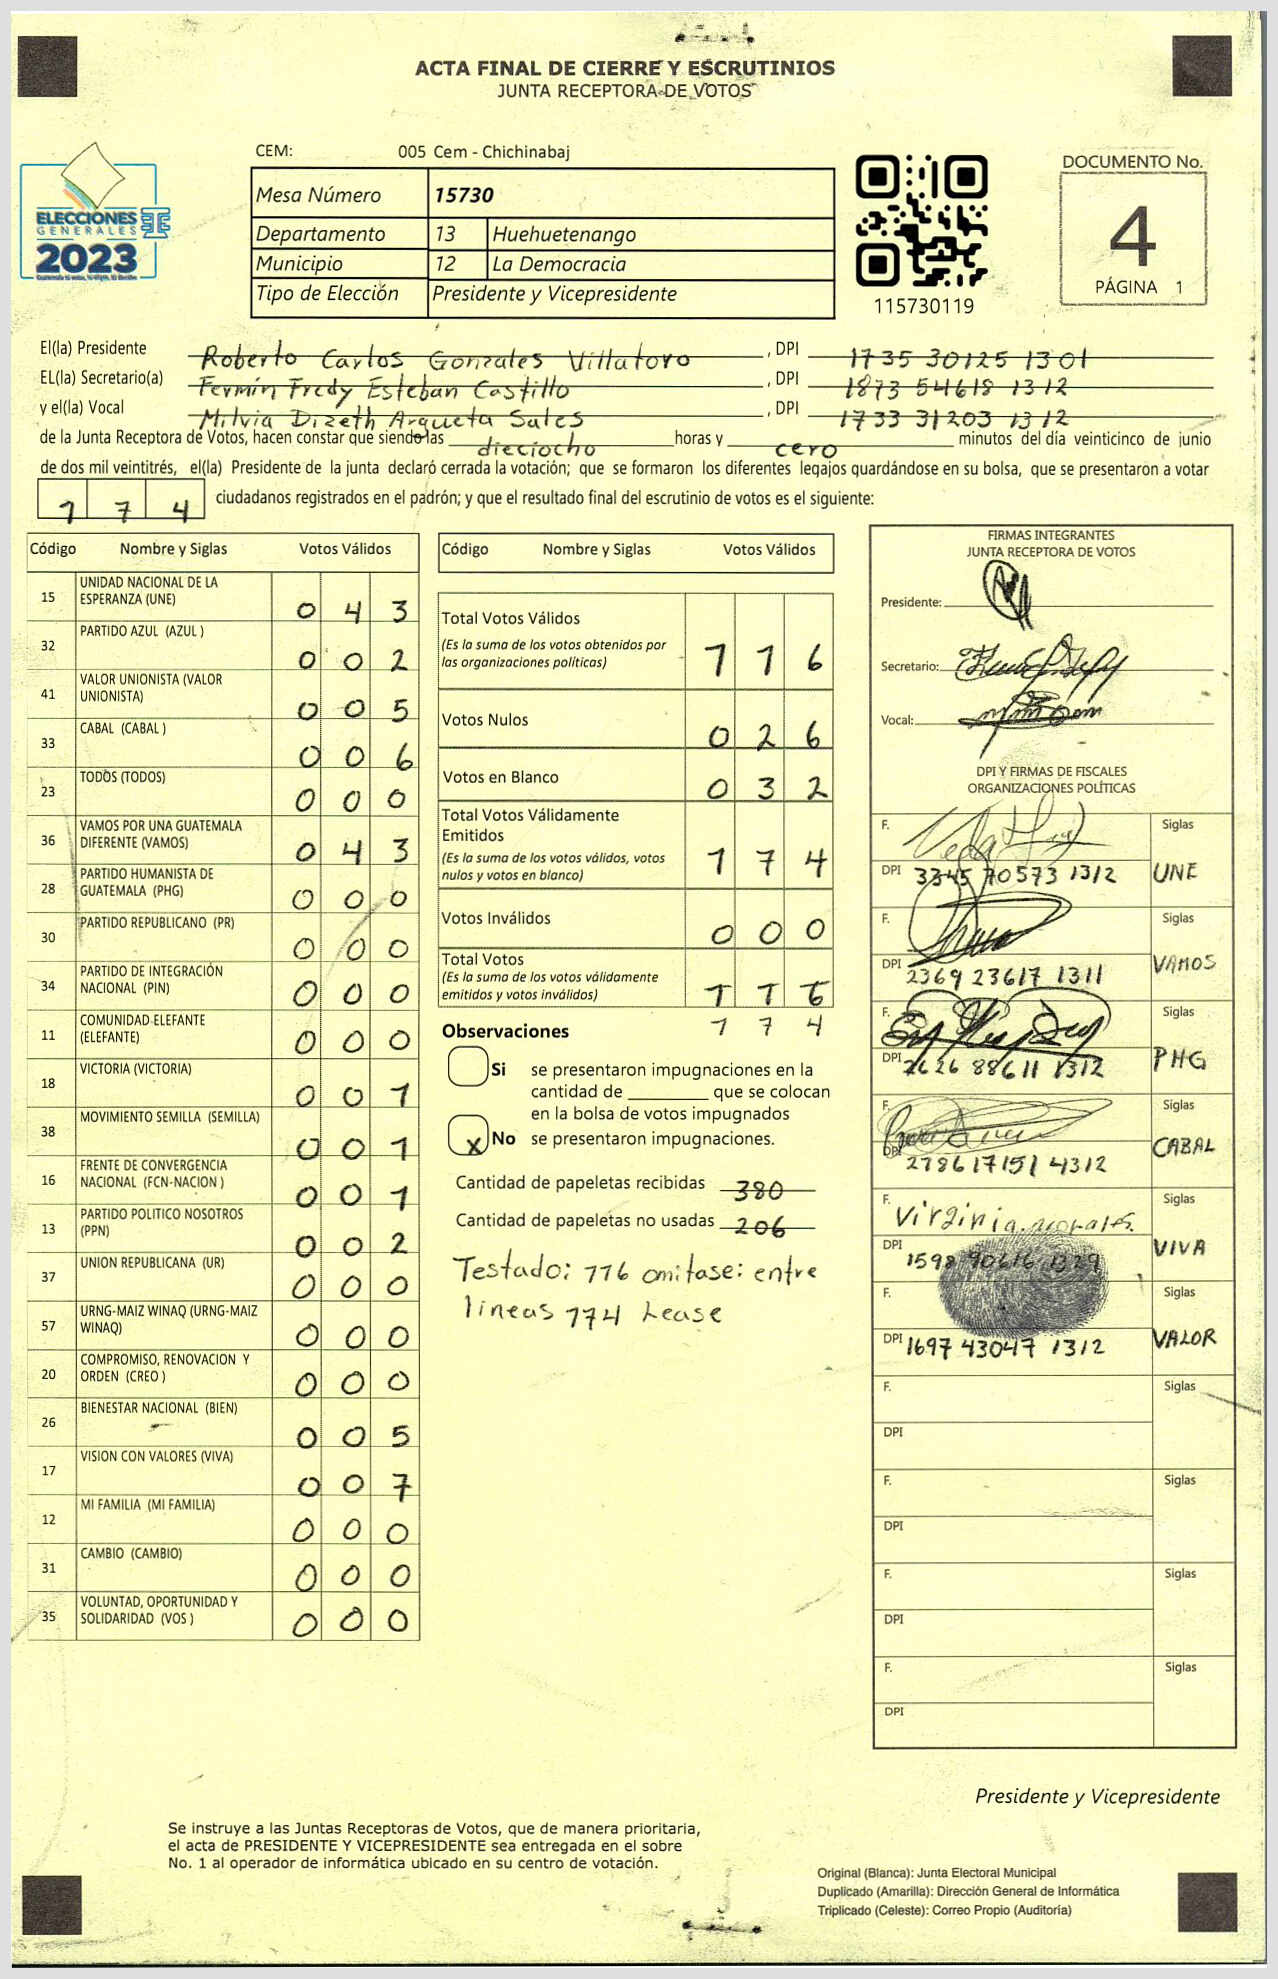 ACTA FINAL DE CIERRE Y ESCRUTINIOS
JUNTA RECEPTORA DE VOTOS
CEM: 005 Cem - Chichinabaj
ELECCIONES
GENERALES
2023
Mesa Número 15730
Departamento 13 Huehuetenango
Municipio 12 La Democracia
Tipo de Elección Presidente y Vicepresidente
115730119
DOCUMENTO No.
4
PÁGINA 1
El(la) Presidente Roberto Carlos Gonzales Villatoro , DPI 1735 30125 1301
EL(la) Secretario(a) Fermín Fredy Esteban Castillo , DPI 1873 54618 1312
y el(la) Vocal Milvia Dizeth Argueta Sales , DPI 1733 31203 1312
de la Junta Receptora de Votos, hacen constar que siendo las dieciocho horas y cero minutos del día veinticinco de junio
de dos mil veintitrés, el(la) Presidente de la junta declaró cerrada la votación; que se formaron los diferentes legajos guardándose en su bolsa, que se presentaron a votar
174 ciudadanos registrados en el padrón; y que el resultado final del escrutinio de votos es el siguiente:
Código Nombre y Siglas Votos Válidos
15 UNIDAD NACIONAL DE LA ESPERANZA (UNE) 0 4 3
32 PARTIDO AZUL (AZUL ) 0 0 2
41 VALOR UNIONISTA (VALOR UNIONISTA) 0 0 5
33 CABAL (CABAL ) 0 0 6
23 TODOS (TODOS) 0 0 0
36 VAMOS POR UNA GUATEMALA DIFERENTE (VAMOS) 0 4 3
28 PARTIDO HUMANISTA DE GUATEMALA (PHG) 0 0 0
30 PARTIDO REPUBLICANO (PR) 0 0 0
34 PARTIDO DE INTEGRACIÓN NACIONAL (PIN) 0 0 0
11 COMUNIDAD ELEFANTE (ELEFANTE) 0 0 0
18 VICTORIA (VICTORIA) 0 0 1
38 MOVIMIENTO SEMILLA (SEMILLA) 0 0 1
16 FRENTE DE CONVERGENCIA NACIONAL (FCN-NACION ) 0 0 1
13 PARTIDO POLITICO NOSOTROS (PPN) 0 0 2
37 UNION REPUBLICANA (UR) 0 0 0
57 URNG-MAIZ WINAQ (URNG-MAIZ WINAQ) 0 0 0
20 COMPROMISO, RENOVACION Y ORDEN (CREO ) 0 0 0
26 BIENESTAR NACIONAL (BIEN) 0 0 5
17 VISION CON VALORES (VIVA) 0 0 7
12 MI FAMILIA (MI FAMILIA) 0 0 0
31 CAMBIO (CAMBIO) 0 0 0
35 VOLUNTAD, OPORTUNIDAD Y SOLIDARIDAD (VOS ) 0 0 0
Código Nombre y Siglas Votos Válidos
Total Votos Válidos 1 1 6
(Es la suma de los votos obtenidos por
las organizaciones políticas)
Votos Nulos 0 2 6
Votos en Blanco 0 3 2
Total Votos Válidamente
Emitidos 1 7 4
(Es la suma de los votos válidos, votos
nulos y votos en blanco)
Votos Inválidos 0 0 0
Total Votos
(Es la suma de los votos válidamente
emitidos y votos inválidos) 1 1 6
1 7 4
Observaciones
Si se presentaron impugnaciones en la
cantidad de que se colocan
en la bolsa de votos impugnados
x No se presentaron impugnaciones.
Cantidad de papeletas recibidas 380
Cantidad de papeletas no usadas 206
Testado: 116 omitase: entre
lineas 174 Lease
FIRMAS INTEGRANTES
JUNTA RECEPTORA DE VOTOS
Presidente:
Secretario:
Vocal:
DPI Y FIRMAS DE FISCALES
ORGANIZACIONES POLÍTICAS
F. Siglas
DPI 3345 70573 1312 UNE
F. Siglas
DPI 2369 23617 1311 VAMOS
F. Siglas
DPI 2626 88611 1312 PHG
F. Siglas
DPI 2786 17151 4312 CABAL
F. Virginia morales. Siglas
DPI 1598 90616 1329 VIVA
F. Siglas
DPI 1697 43047 1312 VALOR
F. Siglas
DPI
F. Siglas
DPI
F. Siglas
DPI
F. Siglas
DPI
Presidente y Vicepresidente
Se instruye a las Juntas Receptoras de Votos, que de manera prioritaria,
el acta de PRESIDENTE Y VICEPRESIDENTE sea entregada en el sobre
No. 1 al operador de informática ubicado en su centro de votación.
Original (Blanca): Junta Electoral Municipal
Duplicado (Amarilla): Dirección General de Informática
Triplicado (Celeste): Correo Propio (Auditoría)